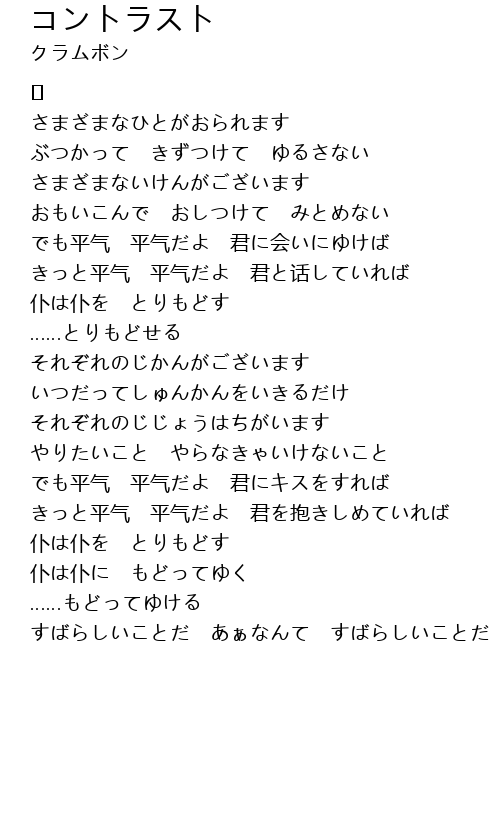 コントラスト
クラムボン
さまざまなひとがおられます
ぶつかって　きずつけて　ゆるさない
さまざまないけんがございます
おもいこんで　おしつけて　みとめない
でも平气　平气だよ　君に会いにゆけば
きっと平气　平气だよ　君と话していれば
仆は仆を　とりもどす
......とりもどせる
それぞれのじかんがございます
いつだってしゅんかんをいきるだけ
それぞれのじじょうはちがいます
やりたいこと　やらなきゃいけないこと
でも平气　平气だよ　君にキスをすれば
きっと平气　平气だよ　君を抱きしめていれば
仆は仆を　とりもどす
仆は仆に　もどってゆく
......もどってゆける
すばらしいことだ　あぁなんて　すばらしいことだ